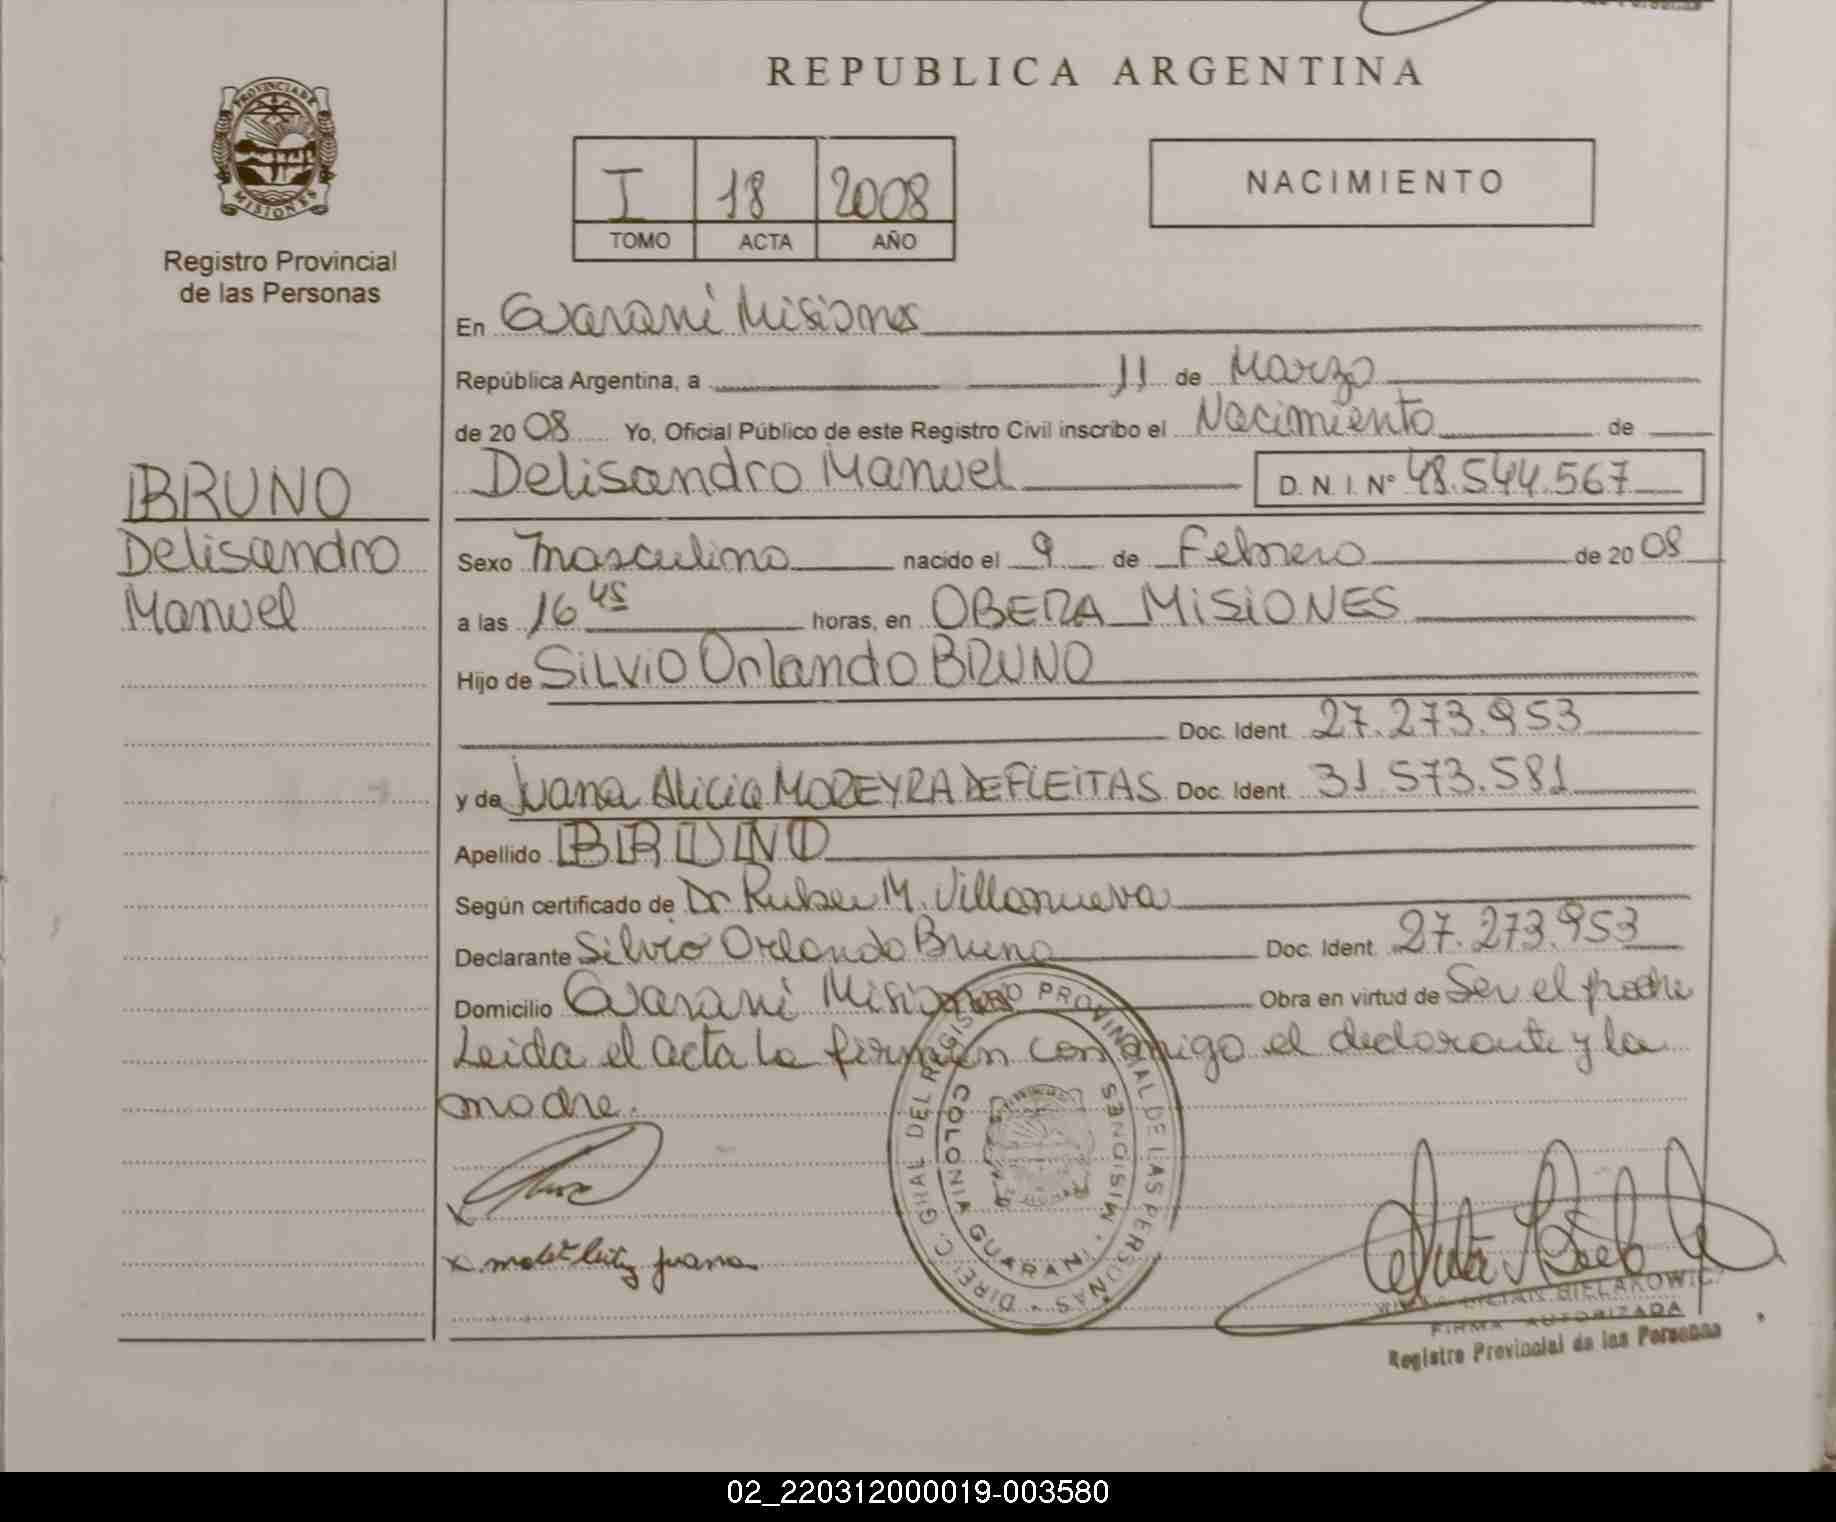 REPUBLICA ARGENTINA
PROVINCIA DE MISIONES
Registro Provincial
de las Personas
I 18 2008
TOMO ACTA AÑO
NACIMIENTO
En Guarani Misiones
República Argentina, a 11 de Marzo
de 2008 Yo, Oficial Público de este Registro Civil inscribo el Nacimiento de
Delisandro Manuel D.N.I. Nº 48.544.567
BRUNO
Delisandro
Manuel
Sexo Masculino nacido el 9 de Febrero de 2008
a las 16 45 horas, en OBERA MISIONES
Hijo de SILVIO Orlando BRUNO
Doc. Ident. 27.273.953
y de Juana Alicia MOREYRA DE FLEITAS Doc. Ident. 31.573.581
Apellido BRUNO
Según certificado de Dr Ruben M. Villanueva
Declarante Silvio Orlando Bruno Doc. Ident. 27.273.953
Domicilio Guarani Misiones Obra en virtud de Ser el padre
Leida el acta la firman conmigo el declarante y la
madre.
DIREC. GRAL DEL REGISTRO PROVINCIAL DE LAS PERSONAS
COLONIA GUARANI - MISIONES
juana
LILIAN BIELAKOWICZ
FIRMA AUTORIZADA
Registro Provincial de las Personas
02_220312000019-003580